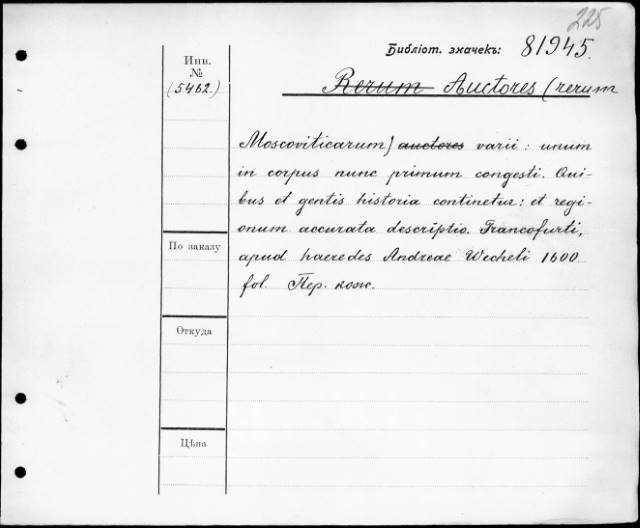 225
Библіот. значекъ: 81945.
Инв.
№
(5462.)
Rerum Auctores (rerum
Moscoviticarum) auctores varii: unum
in corpus nunc primum congesti. Qui-
bus et gentis historia continetur: et regi-
onum accurata descriptio. Francofurti,
apud haeredes Andreae Wecheli 1600.
fol. Пер. кож.
По заказу
Откуда
Цѣна